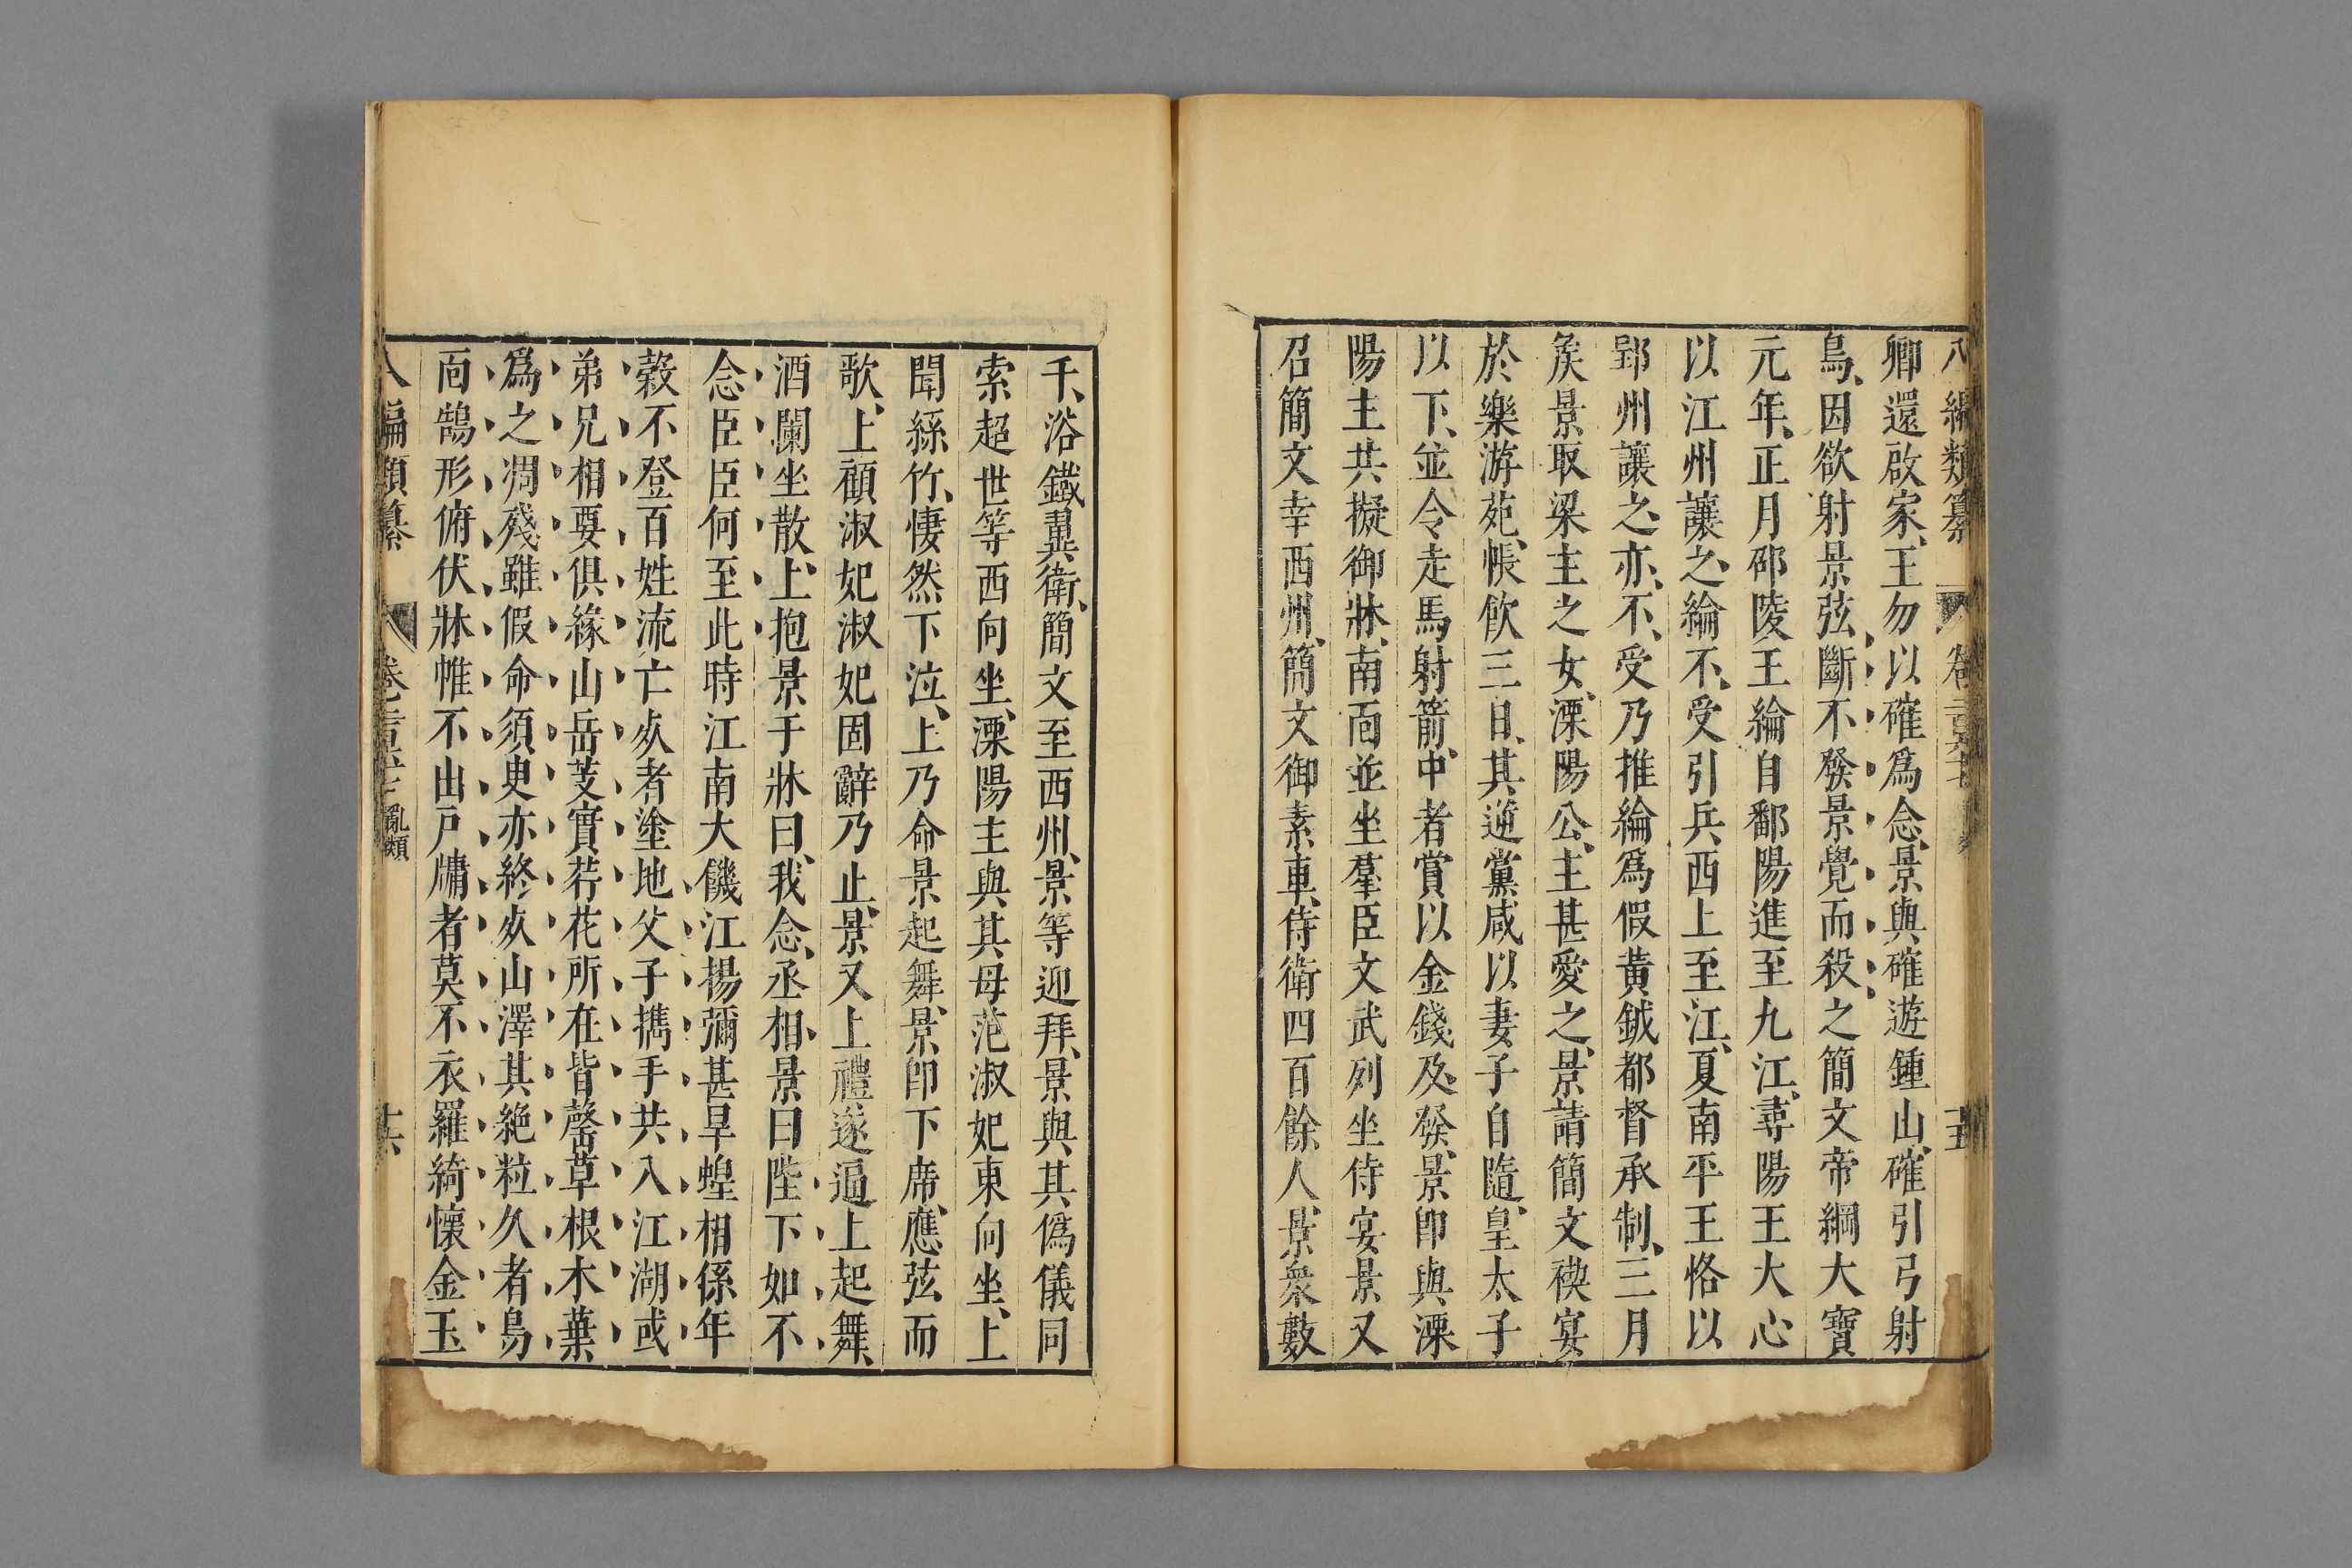 八編類纂 卷二百 十五
卿還啟家、王勿以確爲念、景與確遊鍾山、確引弓射
鳥、因欲射景弦、斷不發景覺而殺之簡文帝綱大寶
元年、正月邵陵王綸自鄱陽進至九江、尋陽王大心
以江州讓之、綸不受引兵西上至江夏、南平王恪以
郢州讓之、亦不受乃推綸爲假黃鉞都督承制、三月
矦景取梁主之女、溧陽公主甚愛之、景請簡文禊宴
於樂游苑、帳飲三日、其逆黨咸以妻子自隨、皇太子
以下、並令走馬射箭、中者賞以金錢及發、景卽與溧
陽主共擬御牀、南面並坐羣臣文武列坐侍宴景又
召簡文幸西州、簡文御素車、侍衛四百餘人、景衆數
千、浴鐵翼衛、簡文至西州、景等迎拜、景與其僞儀同
索超世等西向坐、溧陽主與其母范淑妃東向坐、上
聞絲竹、悽然下泣、上乃命景起舞、景卽下席、應弦而
歌、上顧淑妃淑妃固辭乃止、景又上禮遂逼上起舞、
酒闌坐散、上抱景于牀曰、我念丞相、景曰陛下如不
念臣臣何至此時江南大饑江揚彌甚旱蝗相係年
穀不登百姓流亡死者塗地父子攜手共入江湖或
弟兄相要俱緣山岳芰實荇花所在皆罄草根木葉
爲之凋殘雖假命須臾亦終死山澤其絕粒久者鳥
面鵠形俯伏牀帷不出戸牖者莫不衣羅綺懷金玉
八編類纂 卷二百 亂類 十六